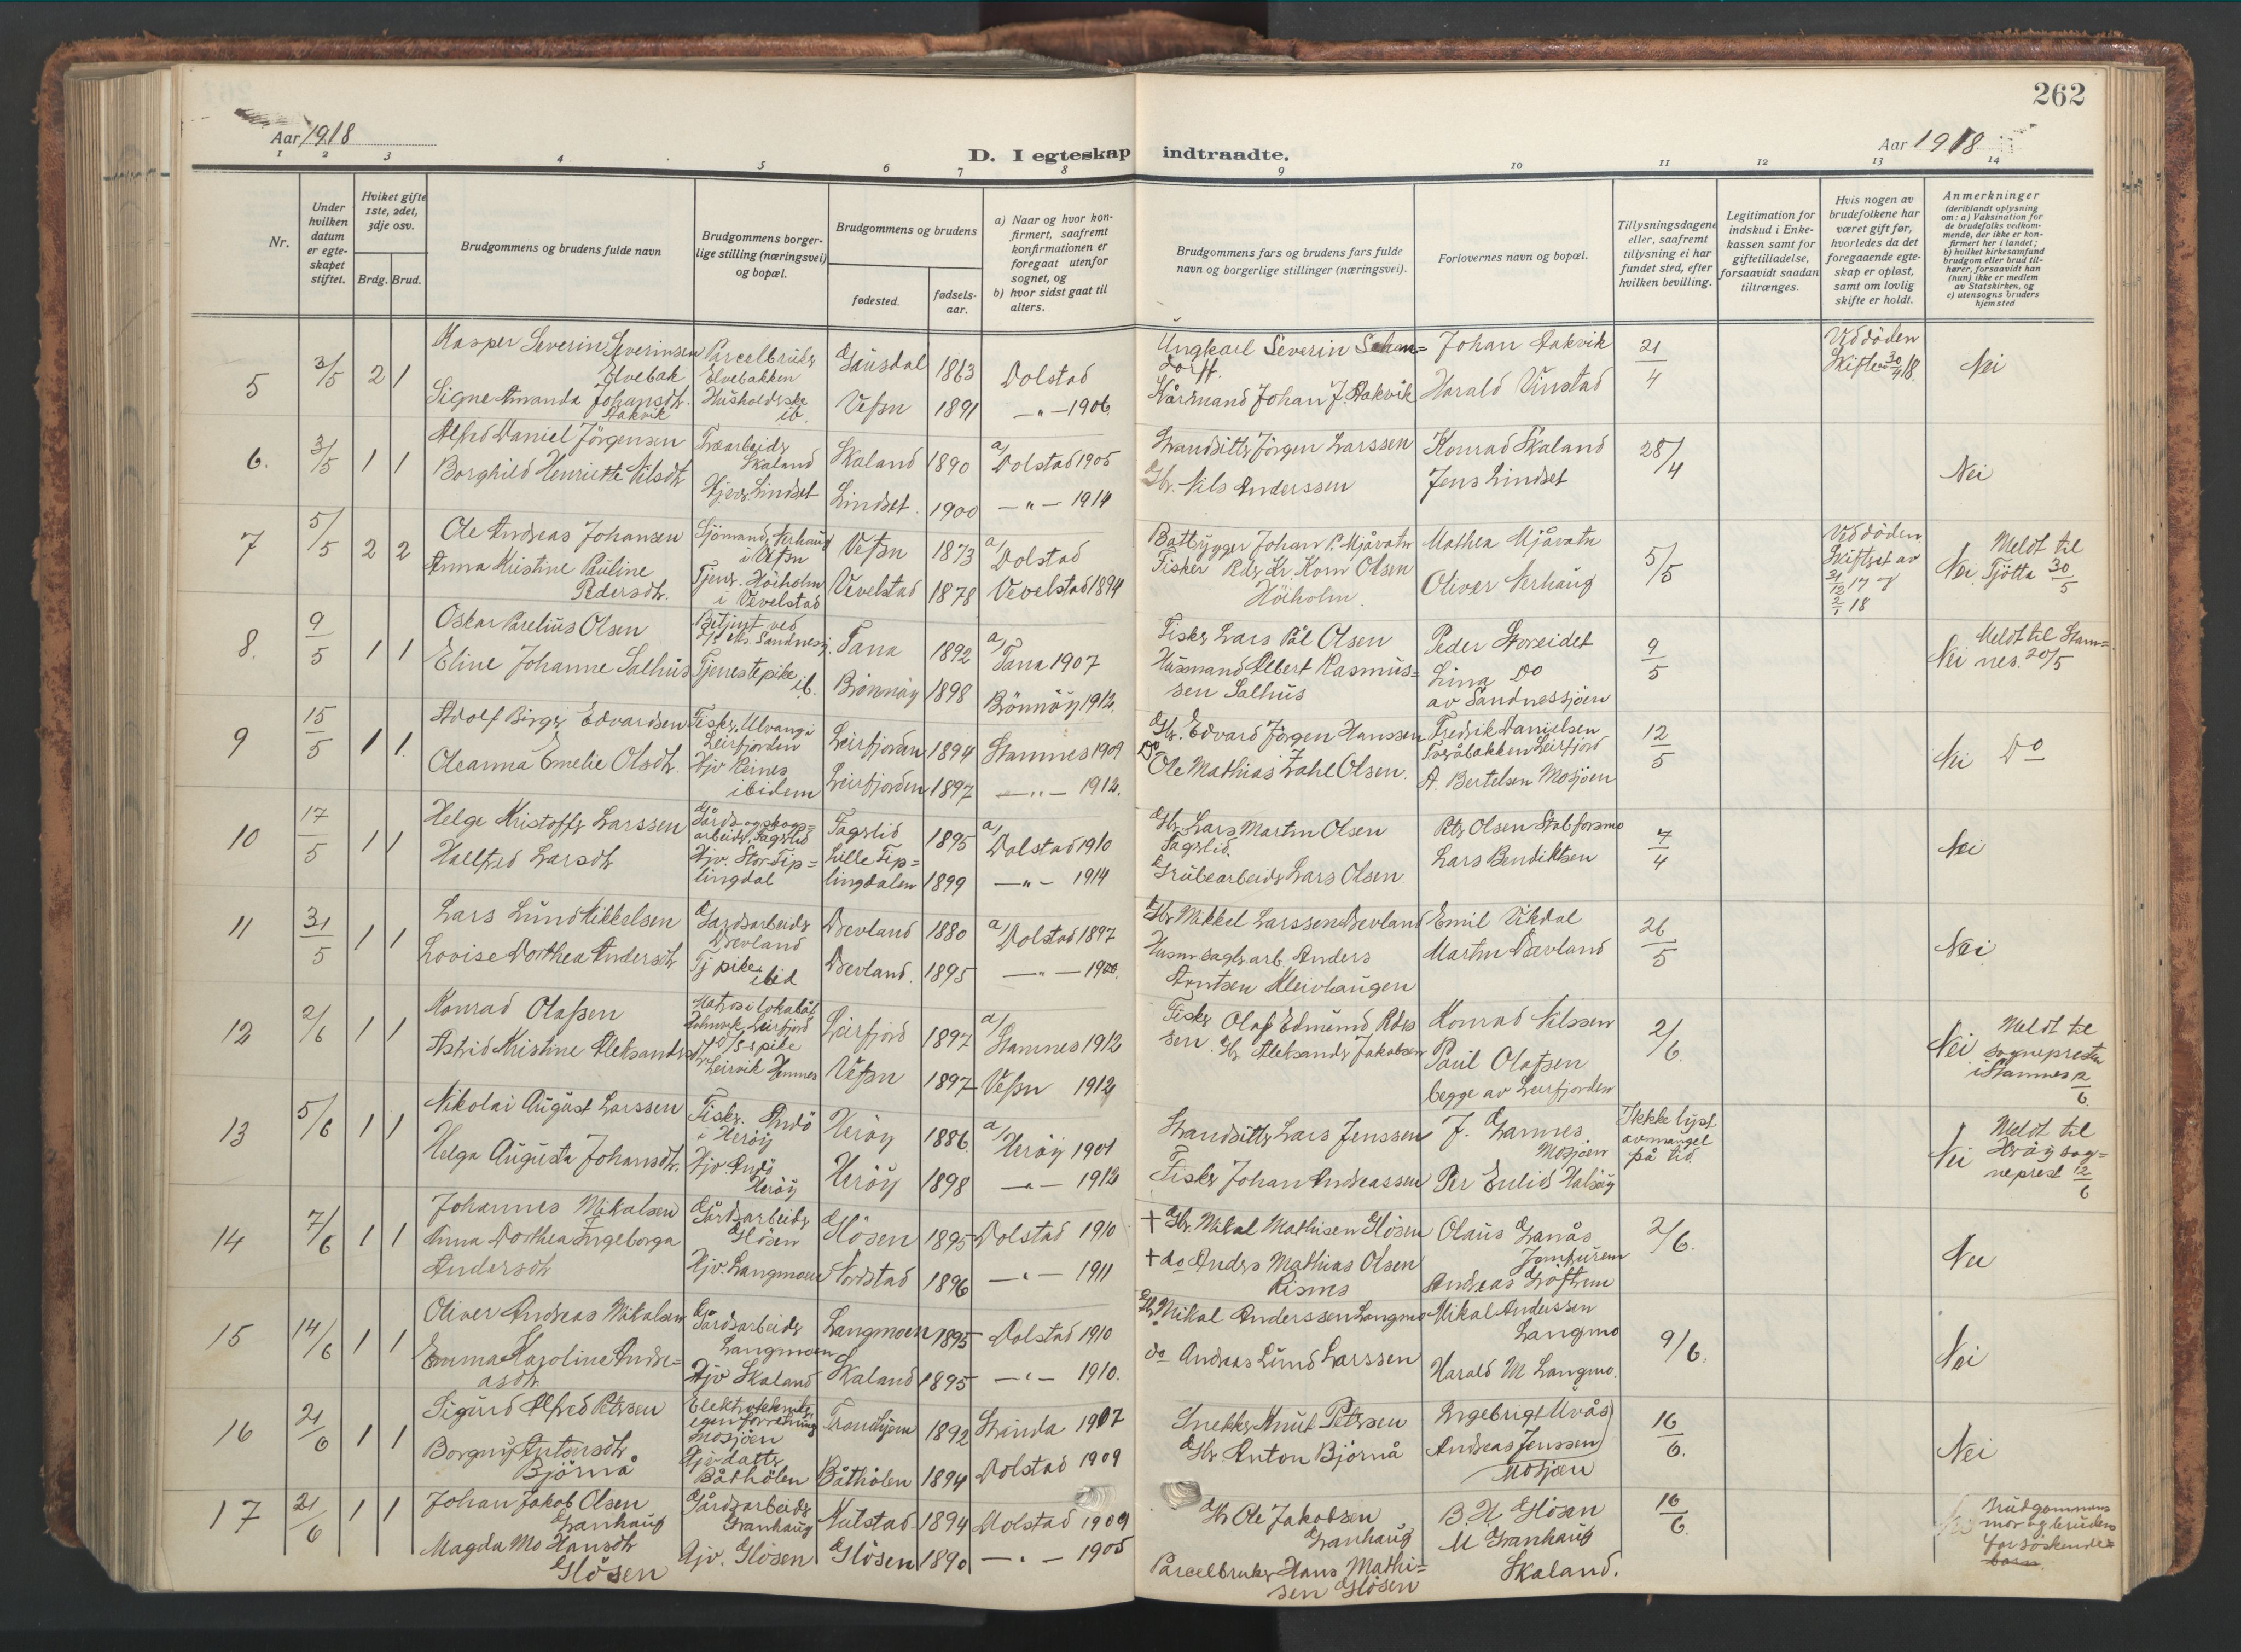 262
Aar 1918
D. I egteskap indtraadte.
Aar 1918
1 2 3 4 5 6 7 8 9 10 11 12 13 14
Nr.
Under hvilken datum er egteskapet stiftet.
Hviket gifte 1ste, 2det, 3dje osv.
Brdg. Brud.
Brudgommens og brudens fulde navn
Brudgommens borgerlige stilling (næringsvei) og bopæl.
Brudgommens og brudens
fødested.
fødsels-aar.
a) Naar og hvor konfirmert, saafremt konfirmationen er foregaat utenfor sognet, og
b) hvor sidst gaat til alters.
Brudgommens fars og brudens fars fulde navn og borgerlige stillinger (næringsvei).
Forlovernes navn og bopæl.
Tillysningsdagene eller, saafremt tillysning ei har fundet sted, efter hvilken bevilling.
Legitimation for indskud i Enkekassen samt for giftetilladelse, forsaavidt saadan tiltrænges.
Hvis nogen av brudefolkene har været gift før, hvorledes da det foregaaende egteskap er opløst, samt om lovlig skifte er holdt.
Anmerkninger
(deriblandt oplysning om: a) Vaksination for de brudefolks vedkommende, der ikke er konfirmert her i landet; b) hvilket kirkesamfund brudgom eller brud tilhører, forsaavidt han (hun) ikke er medlem av Statskirken, og c) utensogns bruders hjemsted
5 3/5 2 1
Kasper Severin Severinsen Elvebak
Parcelbruker Elvebakken
Gausdal 1863 Dolstad
Ungkarl Severin Schandorff.
Johan Aakvik
21/4
Ved döden Skifte 30/4 18.
Nei
Signe Amanda Johansdtr. Aakvik
Husholderske ib.
Vefsn 1891 —"— 1906.
Gårdmand Johan J. Aakvik
Harald Vinstad
6. 3/5 1 1
Alfred Daniel Jörgensen
Træarbeider Skaland
Skaland 1890 a/ Dolstad 1905
Strandsitter Jörgen Larssen
Konrad Skaland
28/4
Nei
Borghild Henriette Nilsdtr
Hjv. Lindset
Lindset. 1900 —"— 1914
Gbr. Nils Anderssen
Jens Lindset
7 5/5 2 2
Ole Andreas Johansen
Sjömand, Nerhaug i Vefsn
Vefsn 1873 a/ Dolstad
Båtbygger Johan P. Mjåvatn
Mathea Mjåvatn
5/5
Ved döden. Skiftet av 31/12 17 & 2/1 18
Nei Meldt til Tjötta 30/5
Anna Kristine Pauline Pedersdtr.
Tjener. Höiholm i Vevelstad
Vevelstad 1878 Vevelstad 1894
Fisker Peder Kr. Korn Olsen Höiholm
Oliver Nerhaug
8. 9/5 1 1
Oskar Parelius Olsen
Betjent ved Sandnessj.
Tana 1892 a/ Tana 1907
Fisker Lars Pål Olsen
Peder Storeidet
9/5
Nei Meldt til Stamnes. 20/5
Eline Johanne Salhus
Tjenestepike ib.
Brönnöy 1898 Brönnöy 1912.
Husmand Albert Rasmussen Salhus
Lina Do av Sandnessjöen
9 15/5 1 1.
Adolf Birger Edvardsen
Fisker, Ulvang i Leirfjorden
Leirfjorden 1894 Stamnes 1909
Gbr. Edvard Jörgen Hanssen
Fredrik Danielsen Leirfjord
12/5
Nei Do
Oleanna Emelie Olsdtr.
Hjv Reines ibidem
Leirfjorden 1897 —"— 1912.
Do Ole Mathias Zahl Olsen.
A. Bertelsen Mosjöen
10 17/5 1 1
Helge Kristoffer Larssen
Gårds og skogsarbeider Fagerlid
Fagerlid 1895 a/ Dolstad 1910
Gbr. Lars Martin Olsen Fagerlid.
Peter Olsen Stabforsmo
7/4
Nei
Hallfred Larsdtr
Hjv. Stor-Tiplingdal
Lille Tiplingdalen 1899 —"— 1914
Grubearbeider Lars Olsen
Lars Bendiktsen
11 31/5 1 1
Lars Lund Mikkelsen
Gardsarbeider Drevland
Drevland 1880 a/ Dolstad 1897
Gbr Mikkel Larssen Drevland
Emil Vikdal
26/5
Nei
Lovise Dorthea Andersdtr
Tj pike ibid
Drevland. 1895 —"—
Husm sagbr. arb. Anders Arntsen Kleivhaugen
Martin Drevland
12 2/6 1 1
Konrad Olafsen
Matros i lokalbåt Leirfjord
Leirfjord 1897 a/ Stamnes 1912
Fisker Olaf Edmund Pedersen
Konrad Nilssen
2/6.
Nei Meldt til sogneprest i Stamnes 12/6
Astrid Kristine Aleksandersdtr
Leirvik Hemnes
Vefsn 1897 Vefsn 1912
Gbr Aleksander Jakobsen
Paul Olafsen begge av Leirfjorden
13 5/6 1 1
Nikolai August Larssen
Fisker. Andö i Heröy
Heröy 1886. a/ Heröy 1901
Strandsitter Lars Jenssen
J. Grannes Mosjöen
Ikke lyst av mangel på tid.
Nei Meldt til Heröy sogneprest 12/6
Helga Augusta Johansdtr.
Hjv Andö Heröy
Heröy 1898 —"— 1912
Fisker Johan Andreassen
Per Enlid Halsöy
14 7/6 1 1
Johannes Mikalsen
Gårdsarbeider Glösen
Glösen 1895 Dolstad 1910
+ Gbr. Mikal Mathisen Glösen
Olaus Granås Jomfurem
2/6.
Nei
Anna Dorthea Ingeborga Andersdtr
Hjv. Langmoen
Nordstad 1896 —"— 1911
+ do Anders Mathias Olsen Risnes
Andreas Grøftrem
15 14/6 1 1
Oliver Andreas Mikalsen
Gårdsarbeider Langmoen
Langmoen 1895 Dolstad 1910
Gbr. Mikal Anderssen Langmo
Mikal Anderssen Langmo
9/6.
Nei
Emma Karoline Andreasdtr.
Hjv Skaland
Skaland 1895 —"— 1910.
do Andreas Lund Larssen
Harald M Langmo.
16 21/6 1 1
Sigurd Alfred Petersen
Elektrotekniker egen forretning Mosjöen
Trondhjem 1892 Strinda 1907
Snekker Knut Petersen
Ingebrigt Uvås
16/6.
Nei
Borgny Antonsdtr Björnå
Hjv. datter Båthölen
Båthölen 1894 Dolstad 1909
Gbr Anton Björnå
Andreas Jenssen Mosjöen
17 21/6 1 1
Johan Jakob Olsen Granhaug
Gårdsarbeider Granhaug
Kulstad 1894 Dolstad 1909
Gbr Ole Jakobsen Granhaug
B. H. Glösen
16/6.
Nei Brudgommens mor og brudens far söskendebarn
Magda Mo Hansdtr Glösen
Hjv. Glösen
Glösen 1890 —"— 1905
Parcelbruker Hans Mathisen Glösen
M Granhaug Skaland.